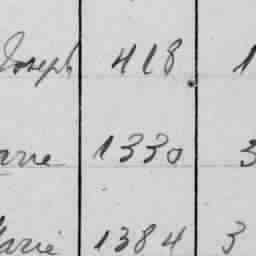 Joseph 418 1
arie 1330 3
Marie 1384 3